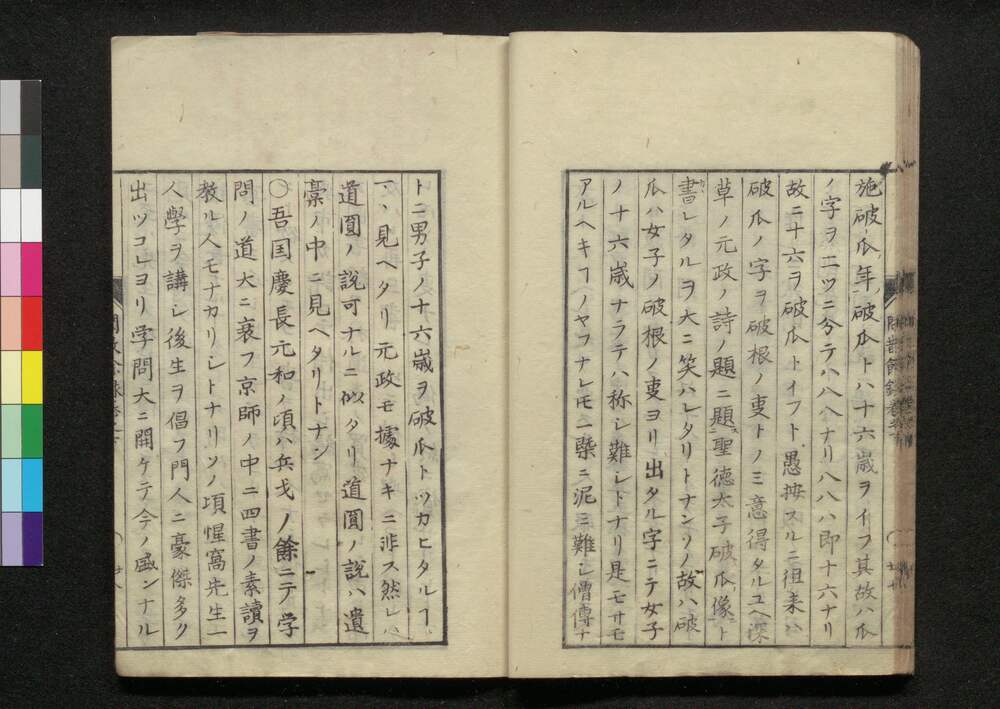 施破瓜年破瓜トハ十六歳ヲイフ其故ハ瓜
ノ字ヲ二ツニ分テハ八八ナリ八八ハ即十六ナリ
故ニ十六ヲ破瓜トイフト愚按スルニ徂来ハ
破瓜ノ字ヲ破根ノ叓トノミ意得タルユヘ深
草ノ元政ノ詩ノ題ニ題聖徳太子破瓜像ト
書レタルヲ大ニ笑ハレタリトナンソノ故ハ破
瓜ハ女子ノ破根ノ叓ヨリ出タル字ニテ女子
ノ十六歳ナラテハ称シ難シトナリ是モサモ
アルヘキヿノヤフナレ𪜈一槩ニ泥ミ難シ僧傳ナ
トニ男子ノ十六歳ヲ破瓜トツカヒタルヿ
一、見ヘタリ元政モ據ナキニ非ス然レハ
道圓ノ説可ナルニ似タリ道圓ノ説ハ遺
稾ノ中ニ見ヘタリトナン
〇吾国慶長元和ノ頃ハ兵戈ノ餘ニテ学
問ノ道大ニ衰フ京師ノ中ニ四書ノ素讀ヲ
教ル人モナカリシトナリソノ頃惺窩先生一
人學ヲ講シ後生ヲ倡フ門人ニ豪傑多ク
出ツコレヨリ学問大ニ開ケテ今ノ盛ンナル